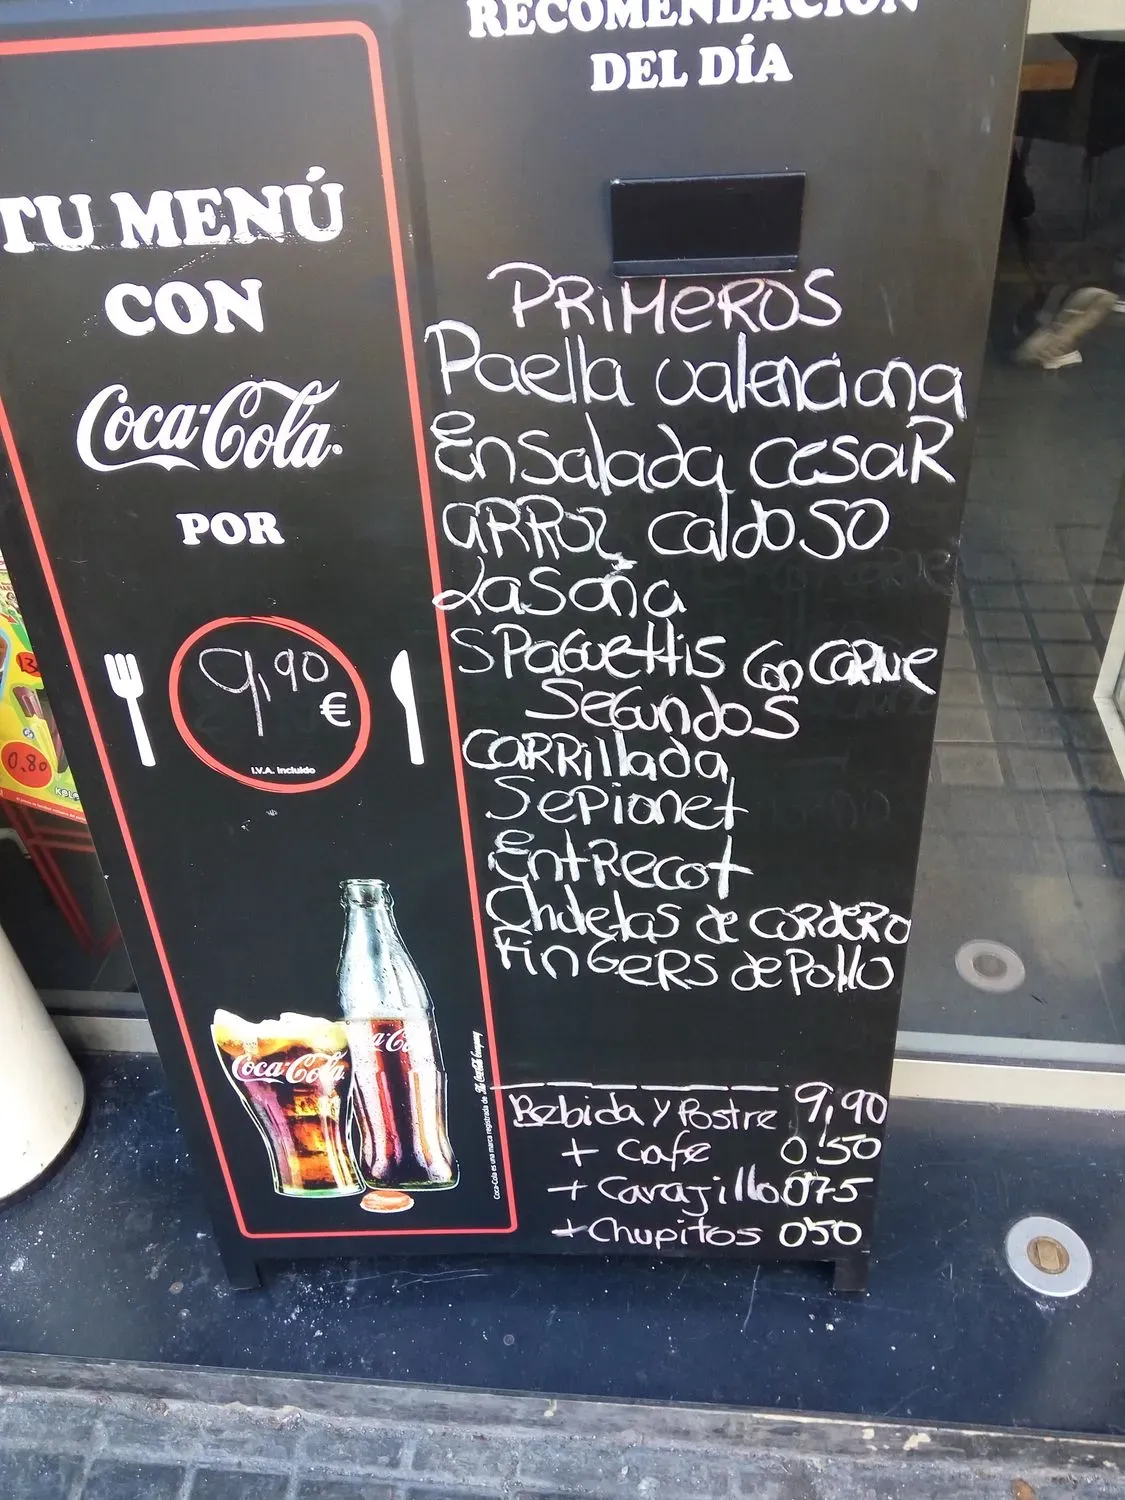 TU MENÚ
CON
Coca-Cola
POR
9,90
€
I.V.A. Incluido
Coca-Cola
Coca-Cola es una marca registrada de The Coca-Cola Company
RECOMENDACIÓN
DEL DÍA
PRiMeROS
Paella valenciana
Ensalada cesaR
aRRoz caldoso
Lasaña
SPaGuettis con caRne
SeGundoS
caRRillada
Sepionet
EntRecot
Chuletas de coRdeRo
FinGeRS de Pollo
Bebida y Postre 9,90
+ Cafe 0'50
+ Carajillo 0'75
+ Chupitos 0'50
0.80